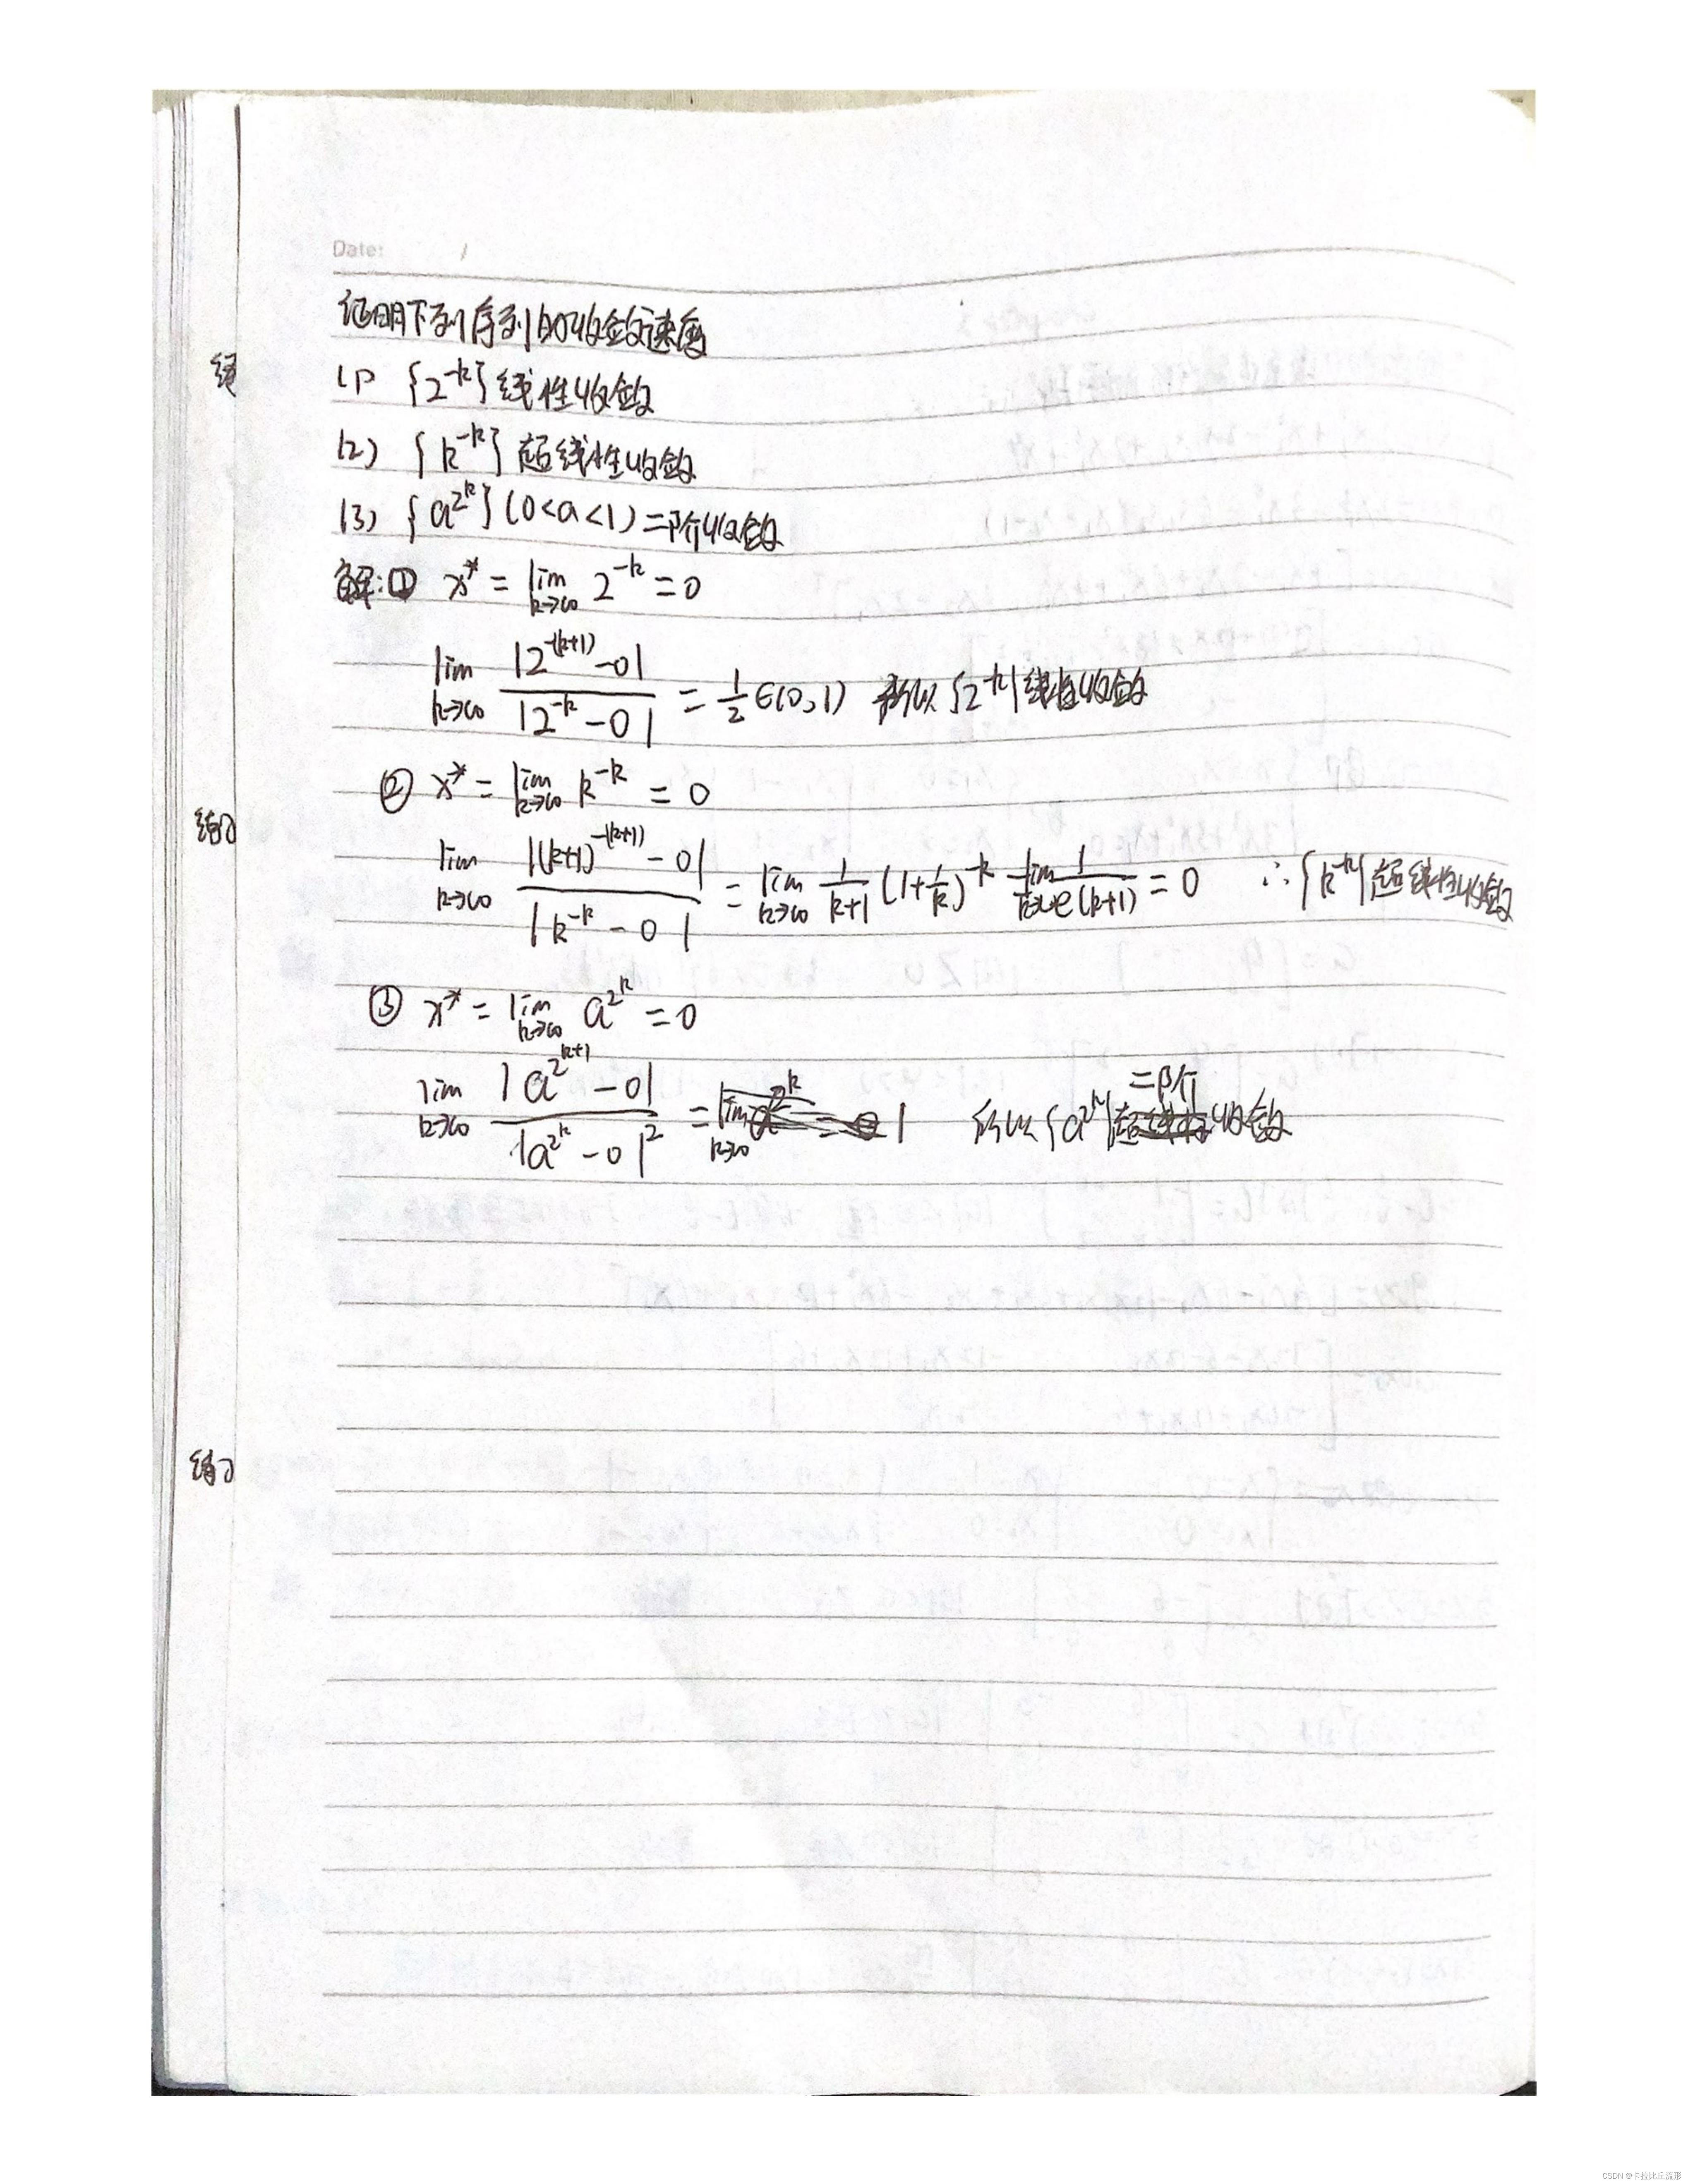 Date: /
证明下列序列的收敛速度
(1) {2^{-k}} 线性收敛
(2) {k^{-k}} 超线性收敛
(3) {a^{2^k}} (0<a<1) 二阶收敛
解:① x* = lim_{k→∞} 2^{-k} = 0
lim_{k→∞} |2^{-(k+1)} - 0| / |2^{-k} - 0| = 1/2 ∈(0,1) 所以{2^{-k}}线性收敛
② x* = lim_{k→∞} k^{-k} = 0
lim_{k→∞} |(k+1)^{-(k+1)} - 0| / |k^{-k} - 0| = lim_{k→∞} 1/(k+1) (1+1/k)^{-k} lim_{k→∞} 1/(e(k+1)) = 0 ∴{k^{-k}}超线性收敛
③ x* = lim_{k→∞} a^{2^k} = 0
lim_{k→∞} |a^{2^{k+1}} - 0| / |a^{2^k} - 0|^2 = 1 所以{a^{2^k}}二阶收敛
练习
练习
CSDN @卡拉比丘流形